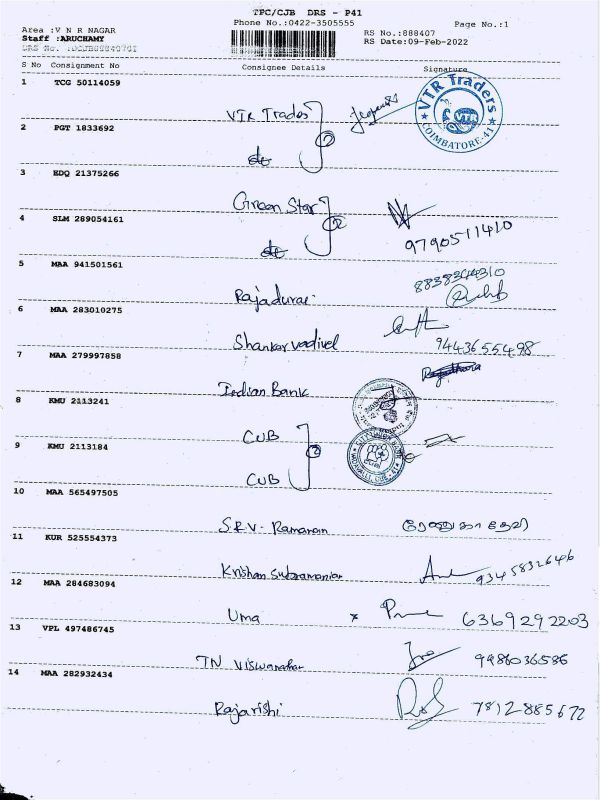 TPC/CJB DRS - P41
Phone No.:0422-3505555
Page No.:1
Area :V N R NAGAR
Staff :ARUCHAMY
RS No.:888407
RS Date:09-Feb-2022
S No Consignment No Consignee Details Signature
1 TCG 50114059
VTR Trades
VTR Traders
COIMBATORE-41
2 PGT 1833692
do
3 EDQ 21375266
Green Star
4 SLM 289054161
do 9790511410
5 MAA 941501561
Rajadurai 8838344310
6 MAA 283010275
Shanker vadivel 9443655498
7 MAA 279997858
Indian Bank
8 KMU 2113241
CUB
9 KMU 2113184
CUB
10 MAA 565497505
S.R.V. Ramanan ரேணுகா தேவி
11 KUR 525554373
Krishan Subramanian 9345832646
12 MAA 284683094
Uma x 6369292203
13 VPL 497486745
TN Viswanathan 9986036586
14 MAA 282932434
Rajarishi 7812885672